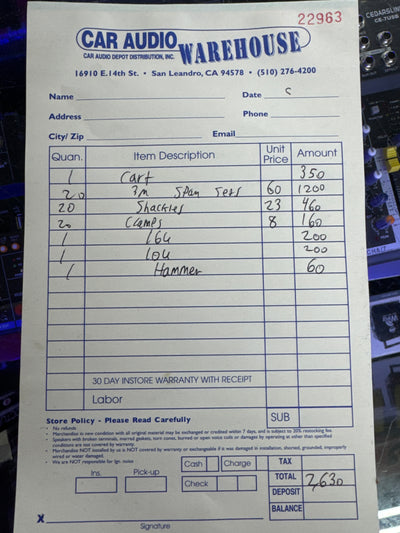 22963
CAR AUDIO WAREHOUSE
CAR AUDIO DEPOT DISTRIBUTION, INC.
16910 E.14th St. • San Leandro, CA 94578 • (510) 276-4200
Name Date
Address Phone
City/ Zip Email
Quan. Item Description Unit Price Amount
1 Cart 350
20 3m Span Sets 60 1200
20 Shackles 23 460
20 Clamps 8 160
1 16u 200
1 10u 200
1 Hammer 60
30 DAY INSTORE WARRANTY WITH RECEIPT
Labor
Store Policy - Please Read Carefully SUB
• No refunds
• Merchandise in new condition with all original material may be exchanged or credited within 7 days, and is subject to 20% restocking fee.
• Speakers with broken terminals, marred gaskets, torn cones, burned or open voice coils or damage by operating at other than specified
conditions are not covered by warranty.
• Merchandise NOT installed by us is NOT covered by warranty or exchangeable if it was damaged in installation, shorted, grounded, improperly
wired or water damaged.
• We are NOT responsible for Ign. noise
Cash Charge TAX
Ins. Pick-up
Check TOTAL 2,630
DEPOSIT
BALANCE
X
Signature
CEDARSLINK